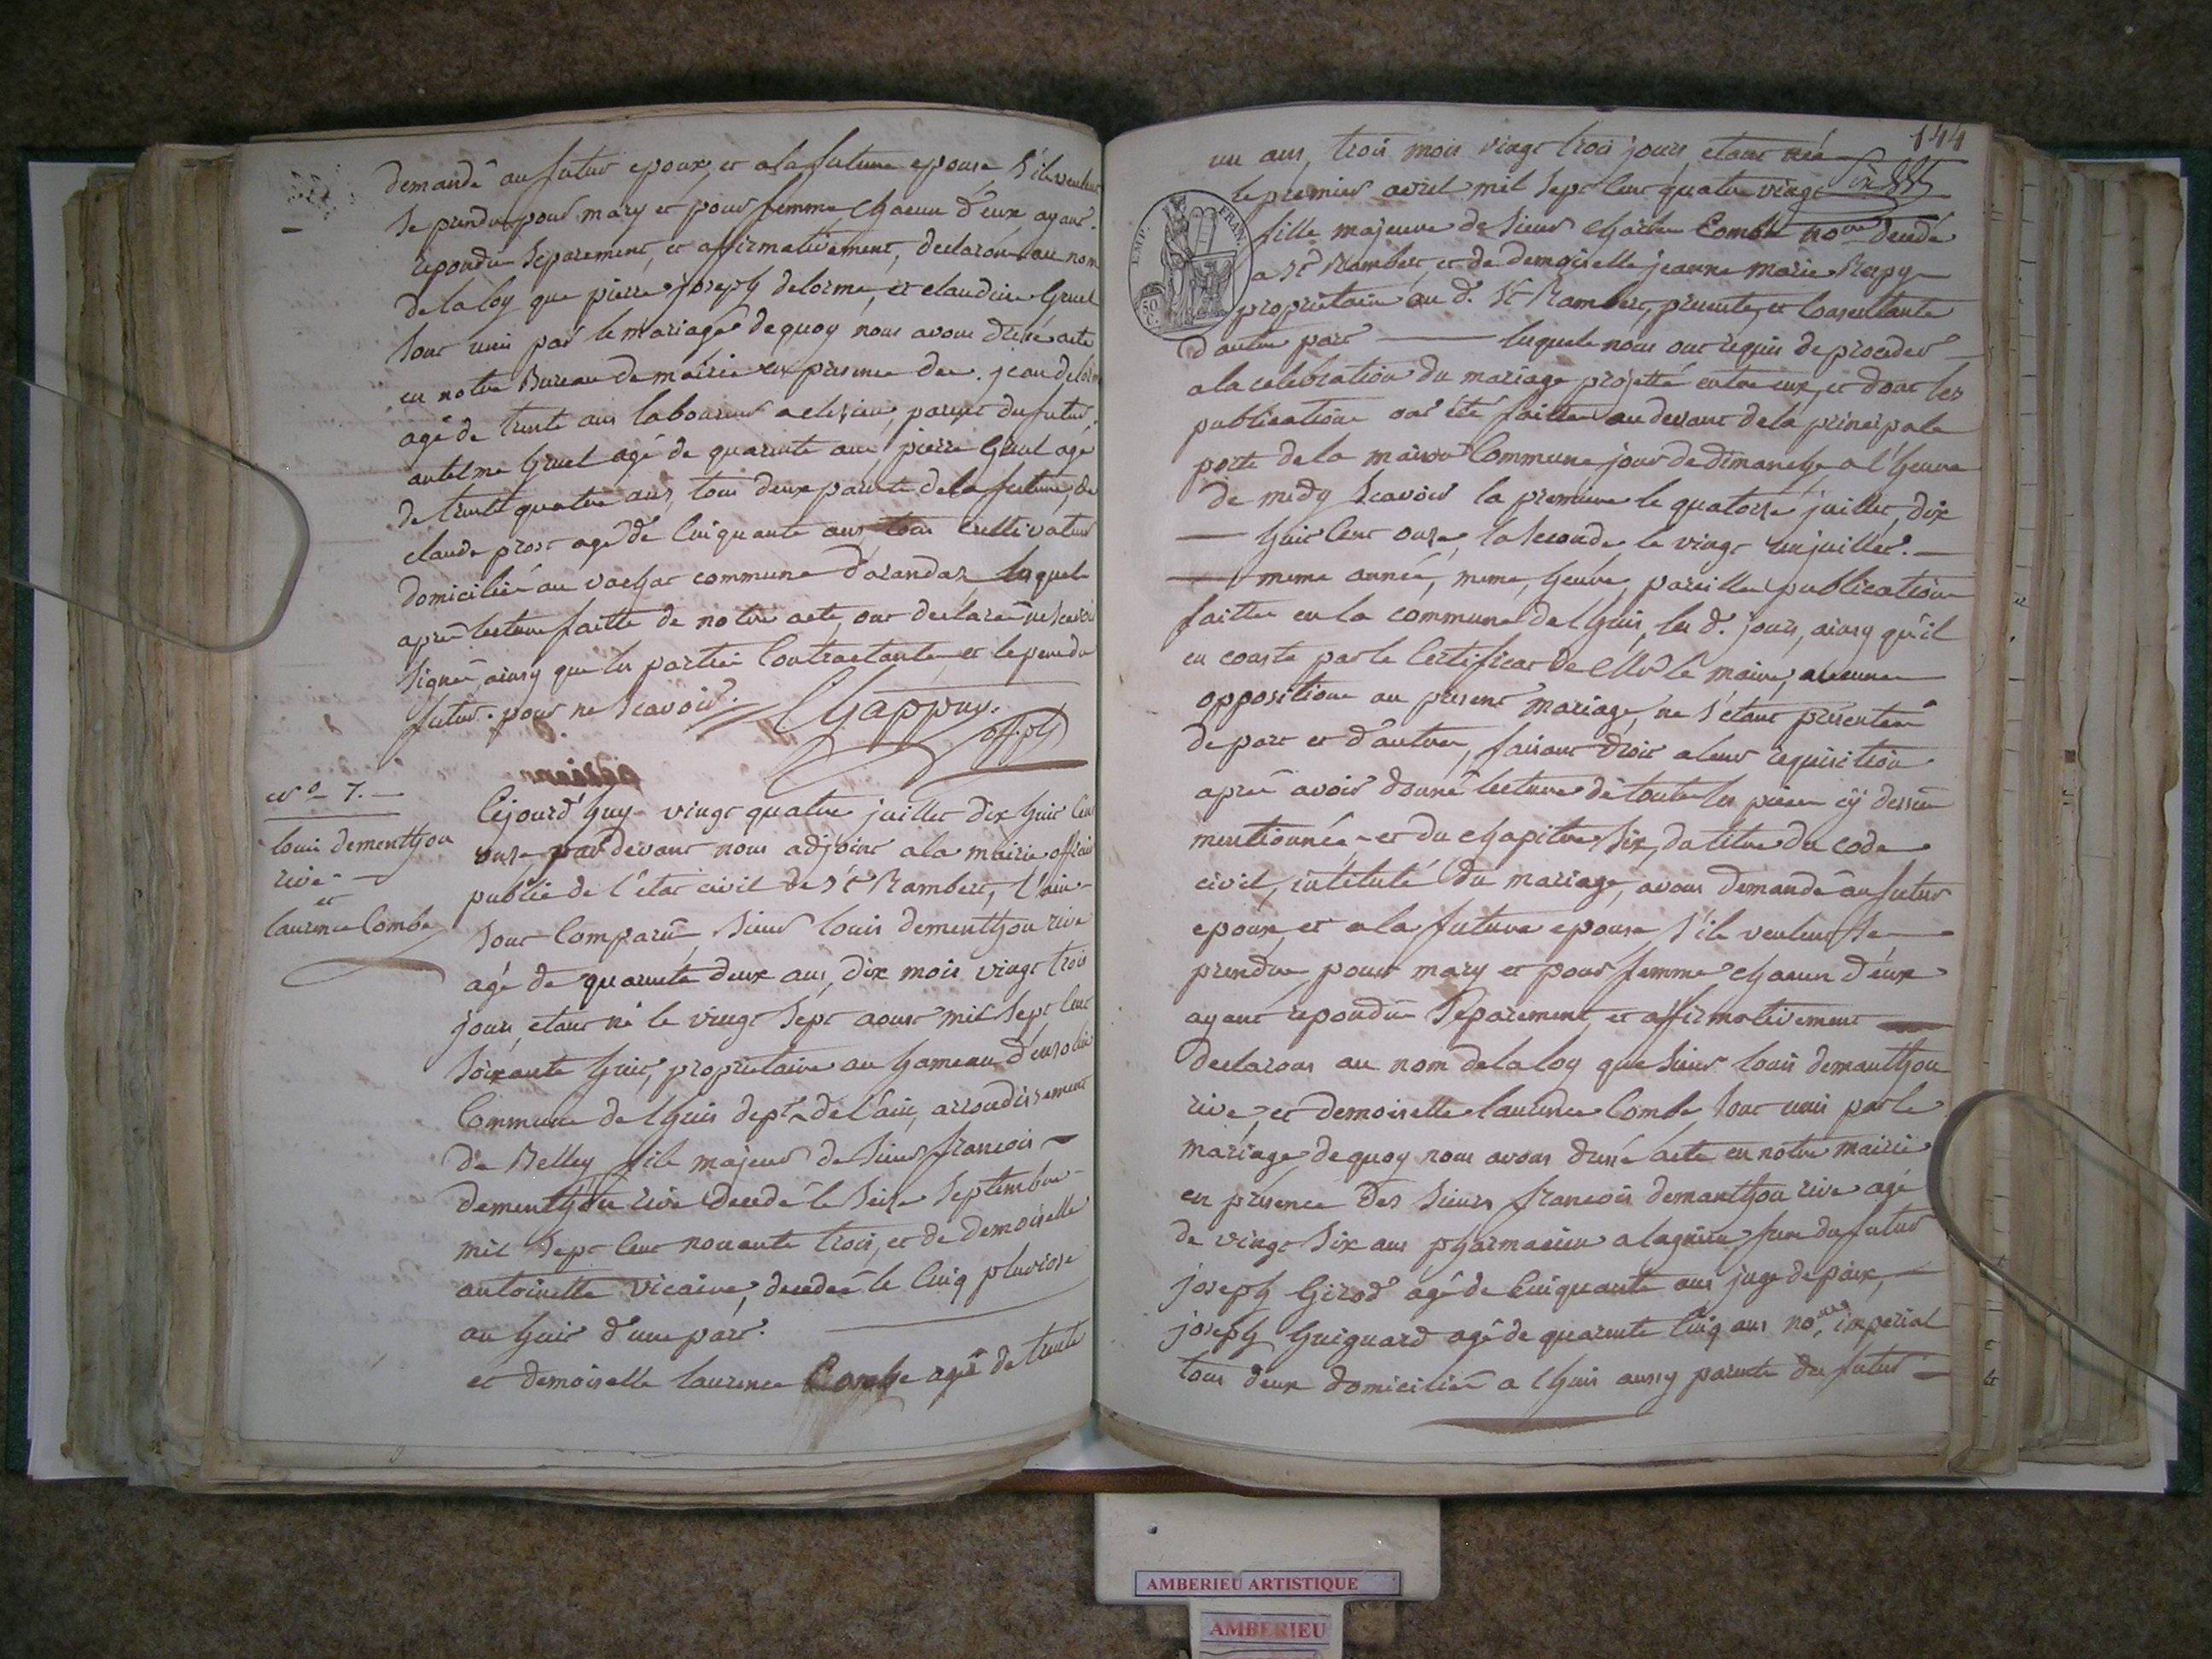 demandé au futur epoux, et a la future epouse s'ils veulent
se prendre pour mary et pour femme chacun d'eux ayant
repondu separement, et affirmativement, declarons au nom
de la loy que pierre joseph delorme, et claudine Gruel
sont unis par le mariage de quoy nous avons dressé acte
en notre Bureau de mairie en presence de jean delorme
agé de trente ans laboureur a cleizieu, parent du futur,
antelme Gruel agé de quarante ans, pierre Gruel agé
de trente quatre ans, tous deux parents de la future, de
claude prost agé de cinquante ans, tous cultivateurs
domiciliés au vachat commune d'arandas, lesquels
après lecture faitte de notre acte, ont declaré ne scavoir
signer, ainsy que les parties contractantes et le pere du
futur. pour ne scavoir.
Chappuy.
adj.
N° 7.
louis dementhon
rive
et
laurence Combe
Cejourd'huy vingt quatre juillet dix huit cent
onze par devant nous adjoint a la mairie officier
public de l'etat civil de St Rambert, l'ain
sont comparus, sieur louis dementhon rive
agé de quarante deux ans, dix mois, vingt trois
jours, etant né le vingt sept aoust mil sept cent
soixante huit, proprietaire au hameau d'
Commune de lhuis dept de l'ain, arrondissement
de Belley fils majeur de sieur francois
dementhon rive decedé le seize septembre
mil sept cent nonante trois, et de demoiselle
antoinette vicaire, decedée le cinq pluviose
an huit d'une part.
et demoiselle laurence Combe agée de trente
144
un ans, trois mois vingt trois jours, etant née
le premier avril mil sept cent quatre vingt
EMP. FRAN.
50 C.
fille majeure de sieur charles Combe nore decedé
a St Rambert, et de demoiselle jeanne marie
proprietaire au d. St Rambert, presente, et consentante
d'autre part lesquels nous ont requis de proceder
a la celebration du mariage projetté entre eux, et dont les
publications ont été faittes au devant de la principale
porte de la maison Commune jour de dimanche a l'heure
de midy scavoir la premiere le quatorze juillet, dix
huit cent onze, la seconde le vingt un juillet.
meme année, meme heure, pareilles publications
faittes en la commune de lhuis, les d. jours, ainsy qu'il
en conste par le certificat de Mr le maire, aucunes
oppositions au present mariage, ne s'étant présentées
de part et d'autre, faisant droit a leur requisition
après avoir donné lecture de toutes les pieces cy dessus
mentionnées et du chapitre six, du titre du code
civil, intitulé du mariage, avons demandé au futur
epoux, et a la future epouse s'ils veulent se
prendre pour mary et pour femme chacun d'eux
ayant repondu separement et affirmativement
declarons au nom de la loy que sieur louis demanthon
rive, et demoiselle laurence Combe sont unis par le
mariage de quoy nous avons dressé acte en notre mairie
en présence des sieurs francois demanthon rive agé
de vingt six ans pharmacien a lagnieu frere du futur
joseph Girod agé de cinquante ans juge de paix,
joseph Guiguard agé de quarante cinq ans nore imperial
tous deux domiciliés a lhuis aussy parents du futur
AMBERIEU ARTISTIQUE
AMBERIEU